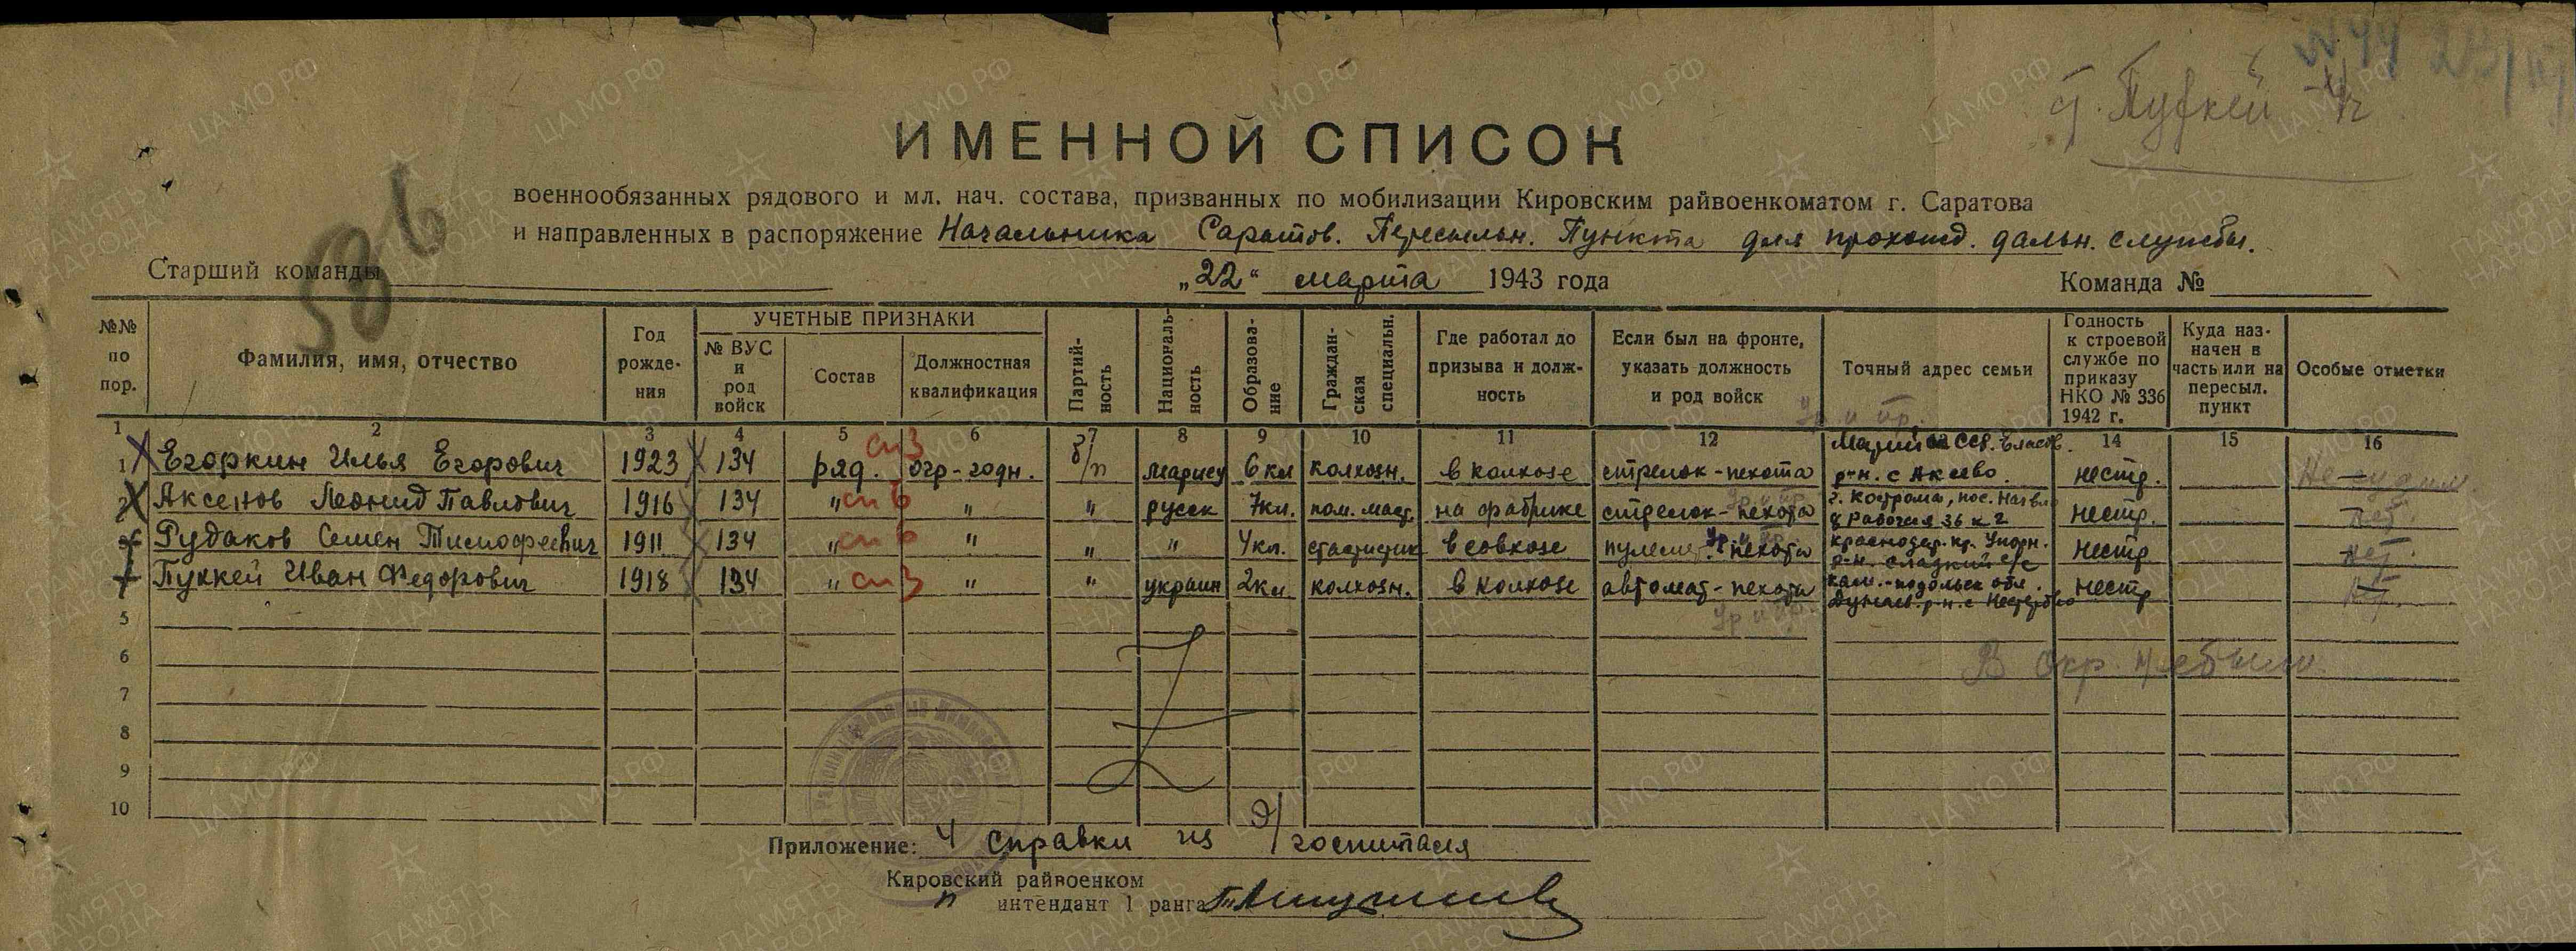 № 44 23/III
ИМЕННОЙ СПИСОК
военнообязанных рядового и мл. нач. состава, призванных по мобилизации Кировским райвоенкоматом г. Саратова
и направленных в распоряжение Начальника Саратов. Пересыльн. Пункта для прохожд. дальн. службы.
Старший команды „22“ марта 1943 года Команда №
№№ по пор. Фамилия, имя, отчество Год рожде-ния УЧЕТНЫЕ ПРИЗНАКИ № ВУС и род войск Состав Должностная квалификация Партий-ность Националь-ность Образова-ние Граждан-ская специальн. Где работал до призыва и долж-ность Если был на фронте, указать должность и род войск Точный адрес семьи Годность к строевой службе по приказу НКО № 336 1942 г. Куда наз-начен в часть или на пересыл. пункт Особые отметки
1 2 3 4 5 6 7 8 9 10 11 12 13 14 15 16
1 Егоркин Илья Егорович 1923 134 ряд. огр-годн. б/п мариец 6 кл колхозн. в колхозе стрелок-пехота р-н. с Аксево. нестр.
2 Аксенов Леонид Павлович 1916 134 „ „ „ русск 7кл. пом. маст. на фабрике стрелок-пехота г. Кострома, пос. нестр. нет.
3 Рудаков Семен Тимофеевич 1911 134 „ „ „ „ 4кл. статистик в совхозе пулемет. пехота Краснодар. кр. Упорн. р-н. Сладкий с/с нестр нет.
4 Пуккей Иван Федорович 1918 134 „ „ „ украин 2кл колхозн. в колхозе автомат-пехота Кам.-подольск обл. Дунаев. р-н. с нестр нет.
5
6
7
8
9
10
Приложение: 4 справки из э/госпиталя
Кировский райвоенком
интендант 1 ранга
ЦАМО РФ
ПАМЯТЬ НАРОДА